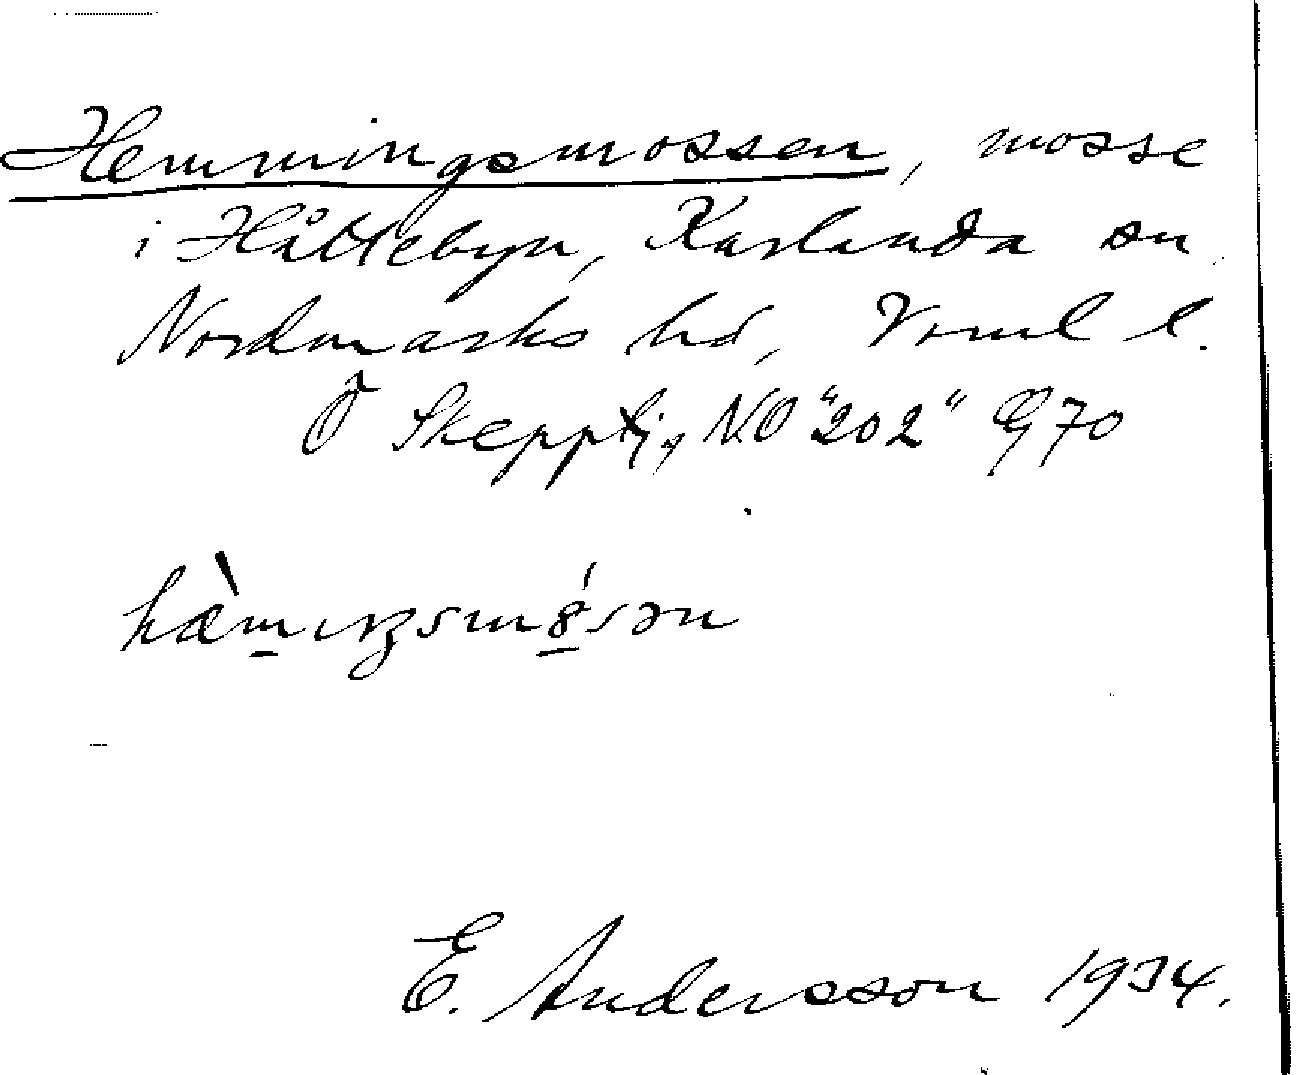 Hemmingsmossen, mosse
i Håltebyn, Karlanda sn
Nordmarks hd, Verml l.
Ö Skepptj, NO "202" G 70
hæ̀mıŋsmǿsən
E. Andersson 1934.